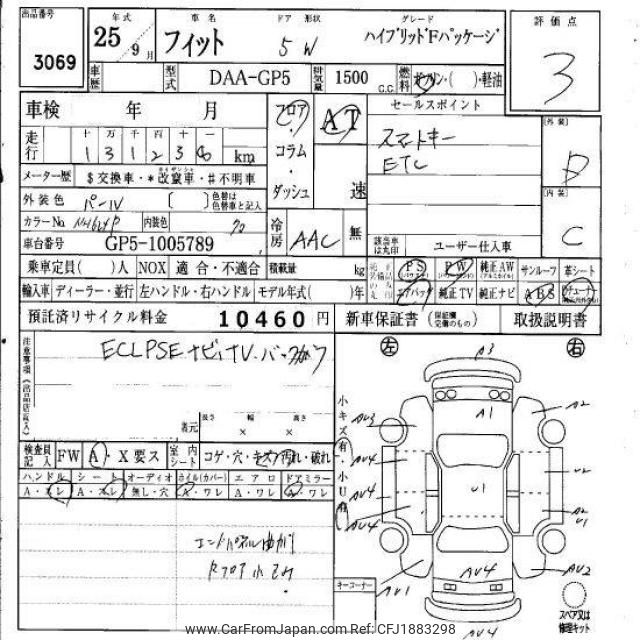 出品番号 3069
年式 25／9月
車名 フィット
ドア 形状 5 W
グレード ハイブリッドFパッケージ
評価点 3
車歴
型式 DAA-GP5
排気量 1500 C.C.
燃料 ガソリン・( )・軽油
車検 年 月
フロア・コラム・ダッシュ
AT 速
セールスポイント
スマートキー
ETC
外装 D
内装 C
走行 十 万 千 百 十 一
1 3 1 2 3 6 km
メーター歴 $交換車・*改竄車・#不明車
外装色 パール [ ] 色替は色替車と記入
カラーNo NH624P 内装色
車台番号 GP5-1005789
冷房 AAC 無
該当車は丸印 ユーザー仕入車
乗車定員( )人 NOX 適合・不適合 積載量 kg
PS PW 純正AW サンルーフ 革シート
輸入車 ディーラー・並行 左ハンドル・右ハンドル モデル年式( )年
エアバッグ 純正TV 純正ナビ ABS
預託済リサイクル料金 10460円
新車保証書 (保証書欄完備のもの) 取扱説明書
注意事項(出品店記入)
ECLPSEナビ,TV.バックカメラ
諸元 長さ 幅 高さ
× ×
検査員記入 FW A・X要ス 室内シート コゲ・穴・キズ・汚れ・破れ
ハンドル シート オーディオ ホイル(カバー) エアロ ドアミラー
A・スレ A・スレ 無し・穴 A・ワレ A・ワレ A・ワレ
エンドパネルゆがみ
左 右
小キズ有・小U有
A3
A1
AV3
A2
AV4
U2
AV4
U1
A2
U1
AV4
AV1
AV4
AV2
AV4
キーコーナー
スペア又は修理キット
www.CarFromJapan.com Ref:CFJ1883298